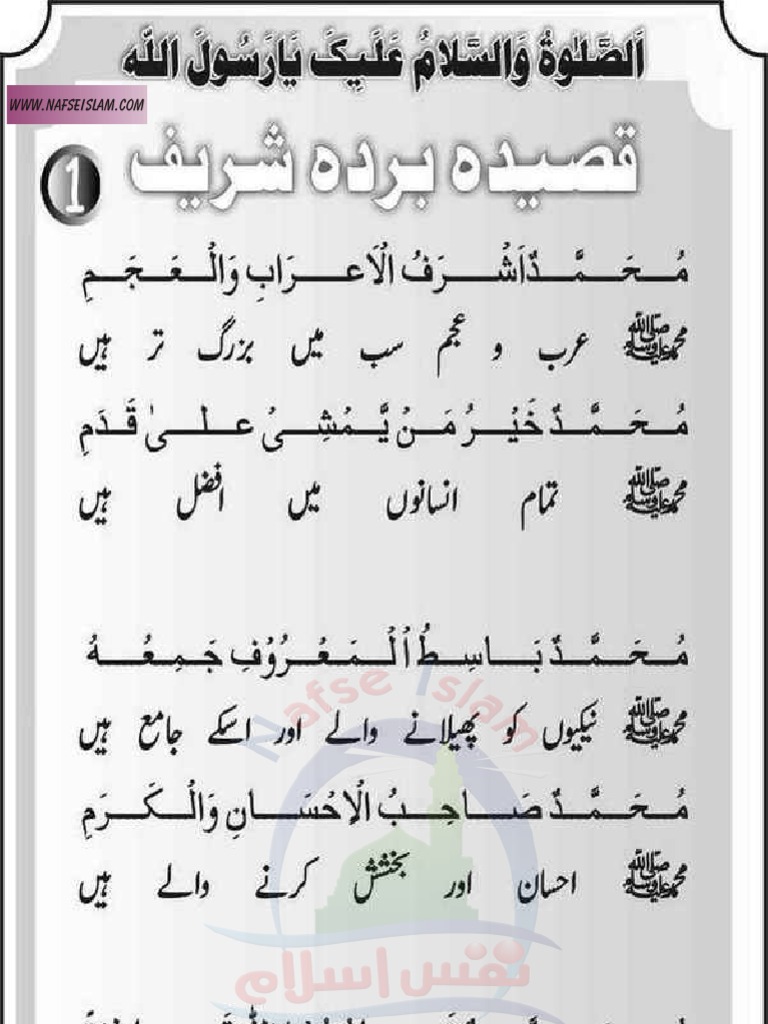 اَلصَّلٰوةُ وَالسَّلَامُ عَلَيْكَ يَا رَسُوْلَ اللّٰه
WWW.NAFSEISLAM.COM
قصیدہ بردہ شریف
1
مُحَمَّدٌ اَشْرَفُ الْاَعْرَابِ وَالْعَجَمِ
محمد ﷺ عرب و عجم سب میں بزرگ تر ہیں
مُحَمَّدٌ خَيْرُ مَنْ يَّمْشِىْ عَلٰى قَدَمِ
محمد ﷺ تمام انسانوں میں افضل ہیں
مُحَمَّدٌ بَاسِطُ الْمَعْرُوْفِ جَمِعُهُ
محمد ﷺ نیکیوں کو پھیلانے والے اور اسکے جامع ہیں
مُحَمَّدٌ صَاحِبُ الْاِحْسَانِ وَالْكَرَمِ
محمد ﷺ احسان اور بخشش کرنے والے ہیں
Nafse Islam
نفس اسلام